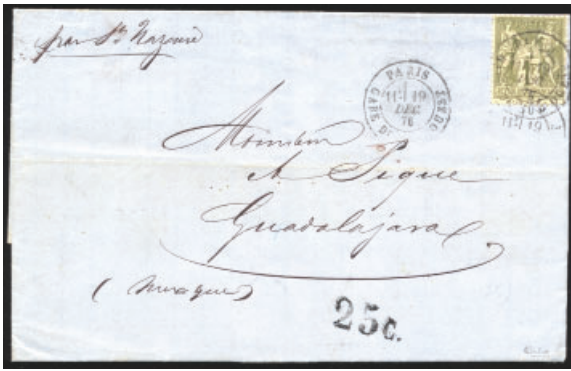 par St Nazaire
PARIS
11E/19
DEC
76
GARE DU
Monsieur
A Pique
Guadalajara
(Mexique)
25c.